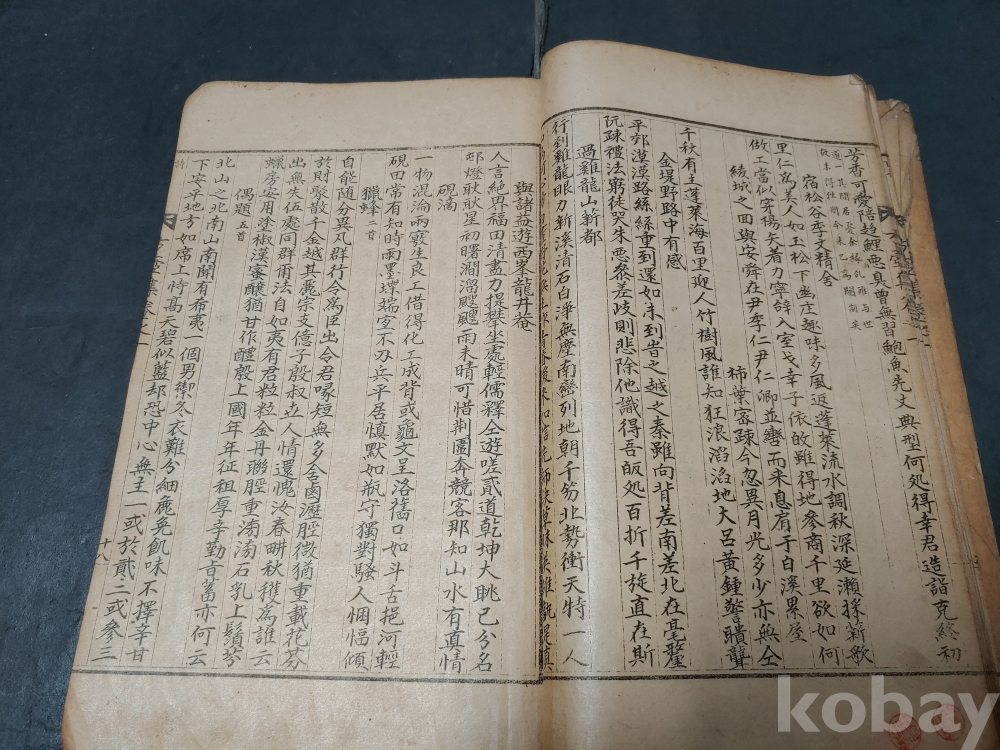 芳香可愛陪趍鯉悪臭曾無習鮑魚先丈典型何処得幸君造詣克終初
宿松谷李文精舍
里仁爲美人如玉松下幽庄趣味多風返蓬萊流水調秋深延瀨採新歌
做工當似穿楊矣着力寧辭入室戈幸子依攸雖得地參商千里欲如何
綾城之回與安舜在尹李仁尹仁卿並轡而来息肩于白溪累屋
柿葉容疎今忽異月光多少亦無仝
千秋有主蓬萊海百里迎人竹樹風誰知狂浪滔滔地大呂黃鍾警聵聾
金堤野路中有感
平郊漠漠路絲絲重到還如未到旹之越之秦雖向背差南差北在毫釐
阮疎禮法窮徒哭朱悪參差歧則悲除他識得吾皈処百折千旋直在斯
過雞龍山新都
行到雞龍眼力新溪清石白淨無塵南巒列地朝千笏北勢衝天特一人
與諸益遊西峯龍井菴
人言絶界福田清盡力提攀坐處輕儒釋仝遊嗟貳道乾坤大眺已分名
邨燈耿耿星初曙澗溜飀飀雨未晴可惜荆圍奔競客那知山水有真情
硯滴
一物混淪兩竅生良工借得化工成背或龜文呈洛舊口如斗舌挹河輕
硯田常有知時雨墨堞端宜不刃兵平居慎默如瓶守獨對騷人悃愊傾
獵蜂二首
自能隨分異凡群行令爲臣出令君喙短無多含鹵瀝脛微猶重載花芬
於財聚散千金越其麗宗支億子殷叔立人情還愧汝春畊秋穫爲誰云
出無失伍處同群甫法自如夷有君粒粒金丹聯脛重滴滴石乳上鬚芩
蠟房安用塗椒漢蜜釀猶甘作醴殷上國年年征租厚辛勤貢蓄亦何云
偶題五首
北山之北南山南間有希夷一個男禦冬衣難分細麁免飢味不擇辛甘
下安平地方如席上恃高天碧似藍却恐中心無主一或於貳二或參三
十八